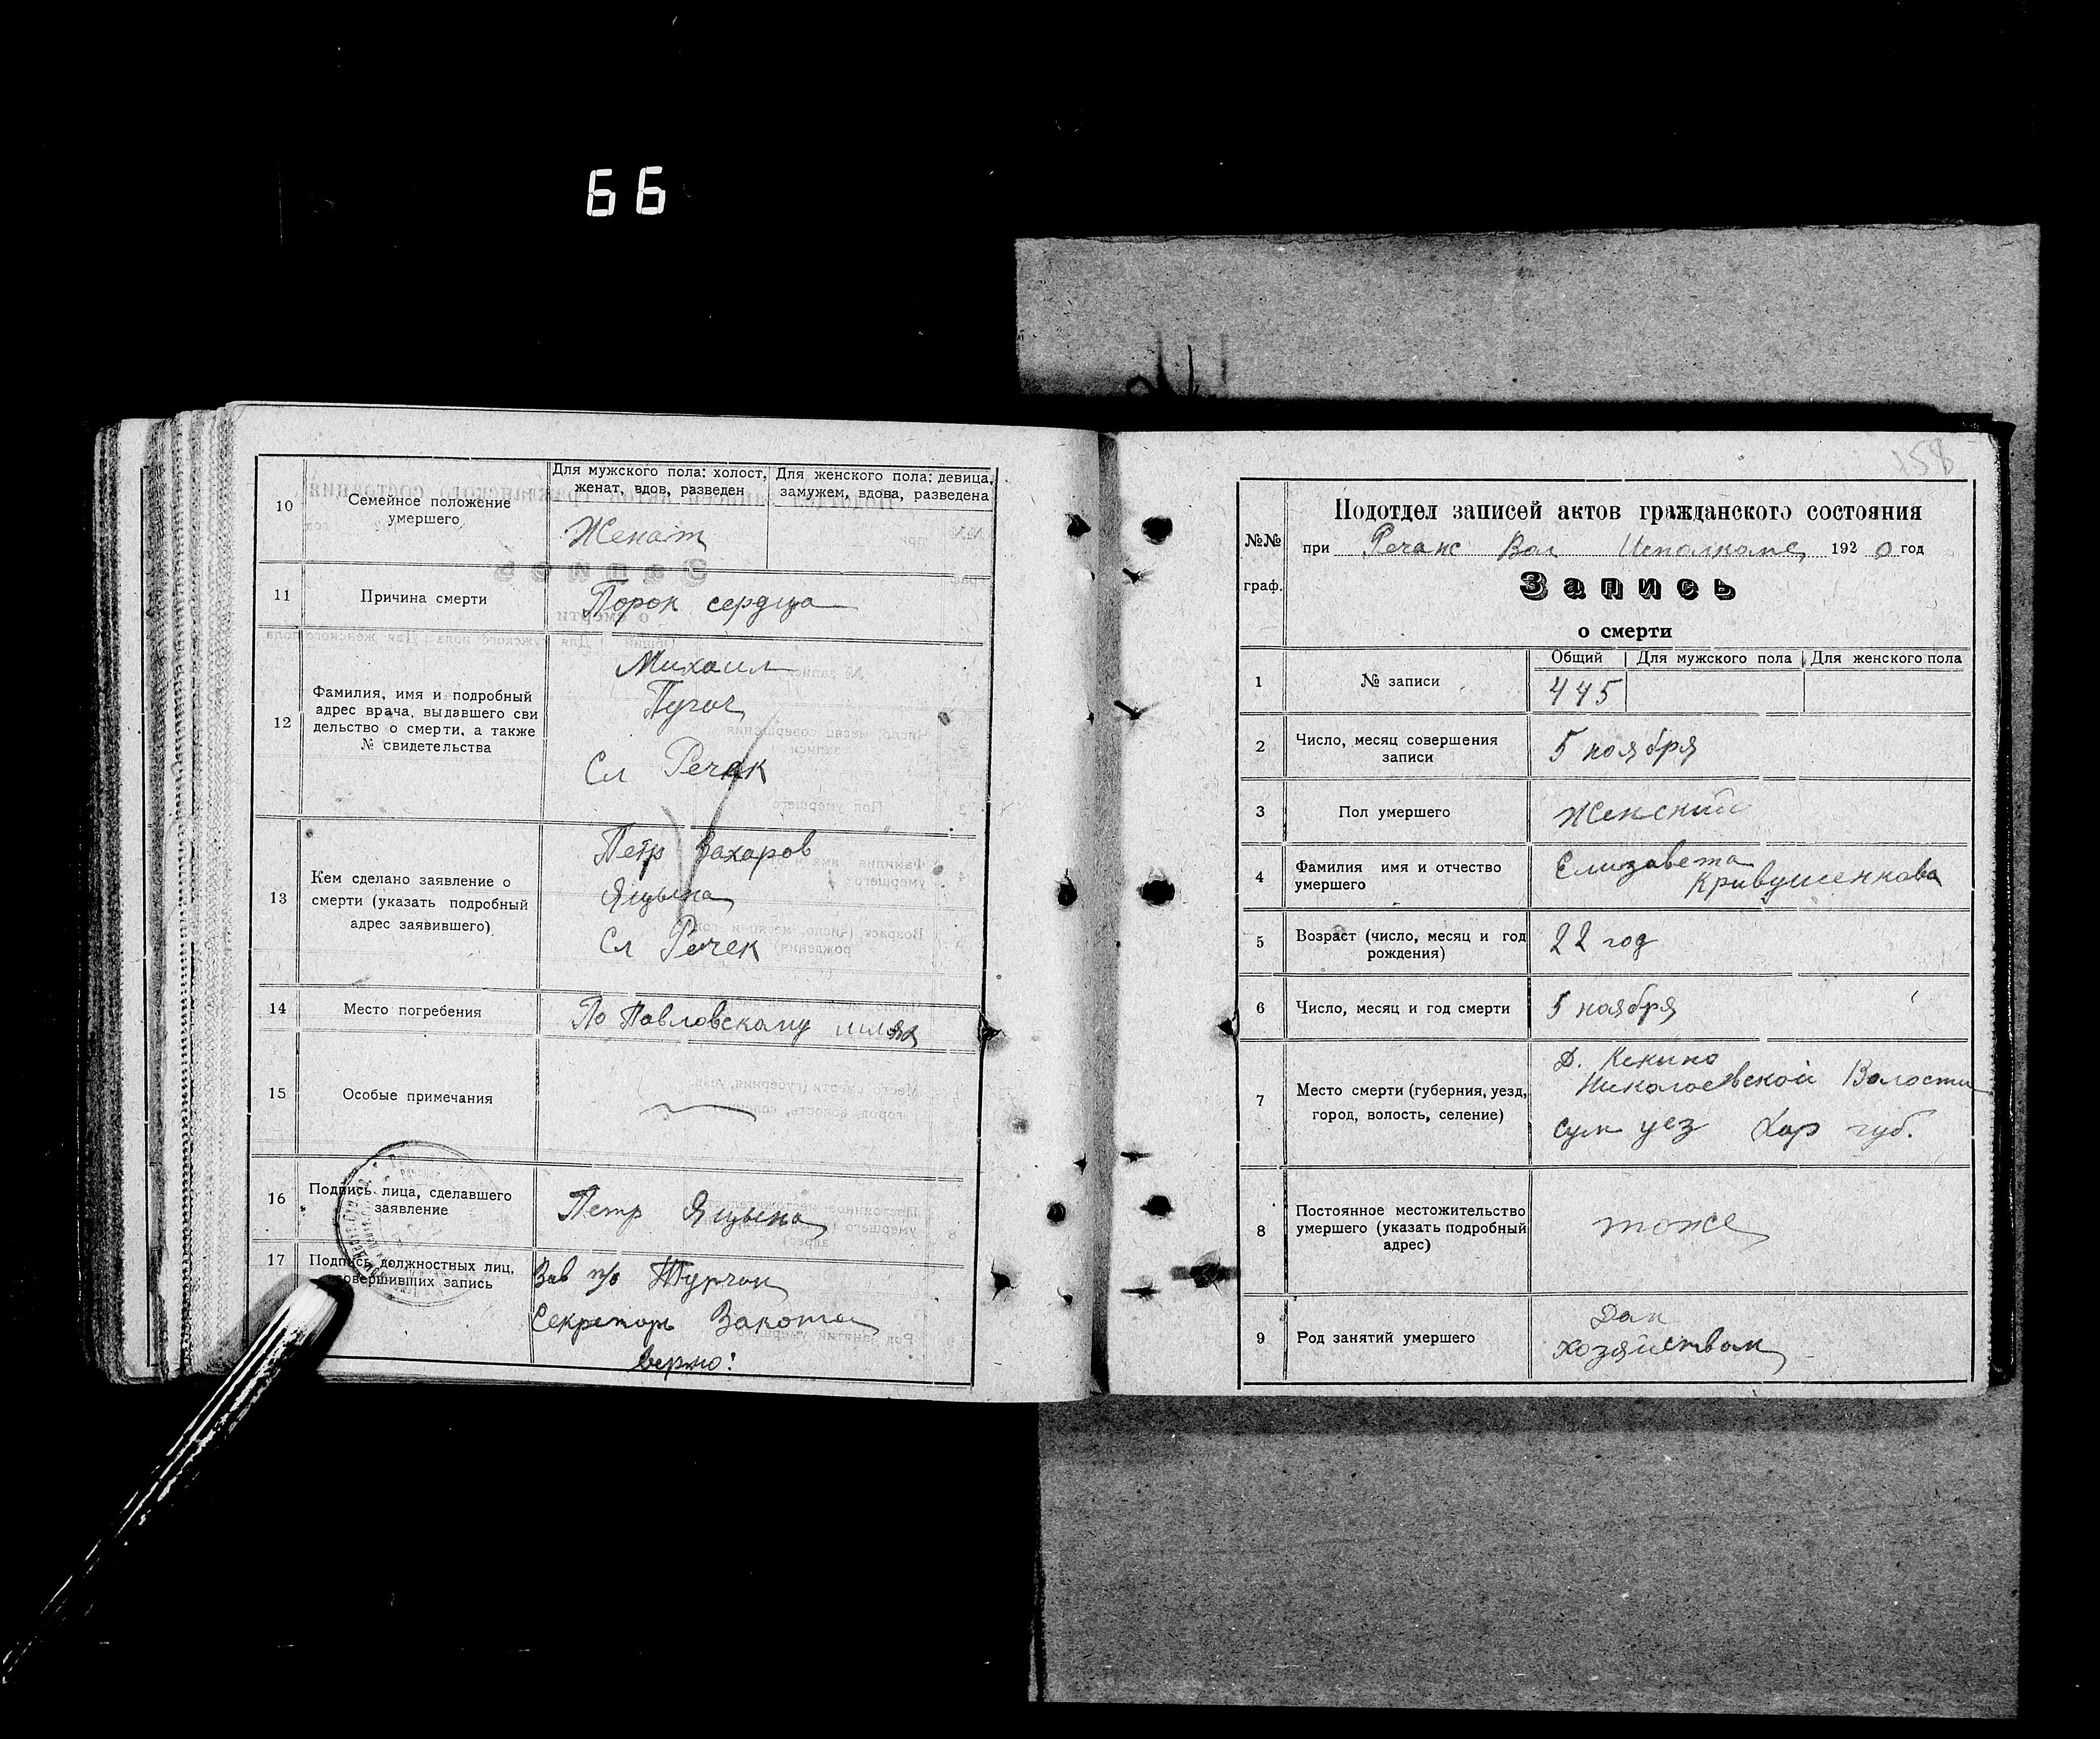 66
10
Семейное положение
умершего
Для мужского пола: холост,
женат, вдов, разведен
Для женского пола: девица,
замужем, вдова, разведена
Женат
11
Причина смерти
Порок сердца
12
Фамилия, имя и подробный
адрес врача, выдавшего сви
дельство о смерти, а также
№ свидетельства
Михаил
Пугач
Сл Речек
13
Кем сделано заявление о
смерти (указать подробный
адрес заявившего)
Петр Захаров
Яцына
Сл Речек
14
Место погребения
По Павловскому шляху
15
Особые примечания
16
Подпись лица, сделавшего
заявление
Петр Яцына
17
Подпись должностных лиц,
совершивших запись
Зав п/о Турчин
Секретарь
верно!
158
№№
граф.
Подотдел записей актов гражданского состояния
при Речанс Вол Исполкоме 1920 год
Запись
о смерти
1
№ записи
Общий
Для мужского пола
Для женского пола
445
2
Число, месяц совершения
записи
5 ноября
3
Пол умершего
Женский
4
Фамилия имя и отчество
умершего
Елизавета
Кривушенкова
5
Возраст (число, месяц и год
рождения)
22 год
6
Число, месяц и год смерти
5 ноября
7
Место смерти (губерния, уезд,
город, волость, селение)
Д. Кекино
Николаевской Волости
Сум уез Хар губ.
8
Постоянное местожительство
умершего (указать подробный
адрес)
тоже
9
Род занятий умершего
Дом
хозяйством